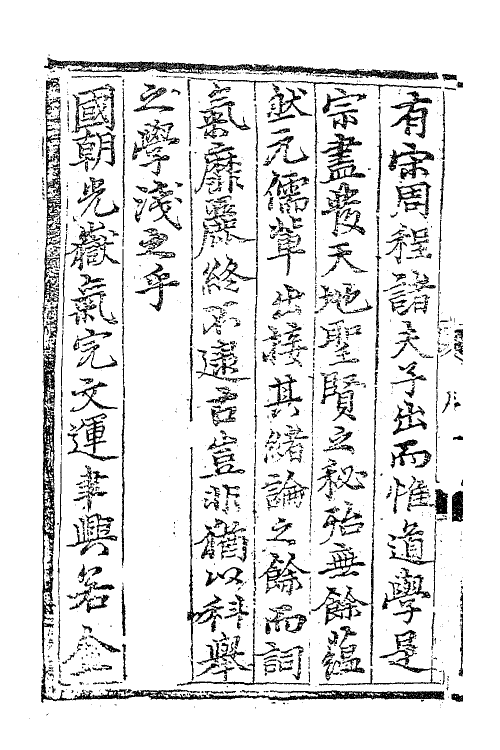 有宋周程諸夫子出而惟道學是
宗盡發天地聖賢之秘殆無餘蘊
然元儒輩出接其緒論之餘而詞
氣靡麗終不逮古豈非猶以科舉
之學淺之乎
國朝光嶽氣完文運聿興若金